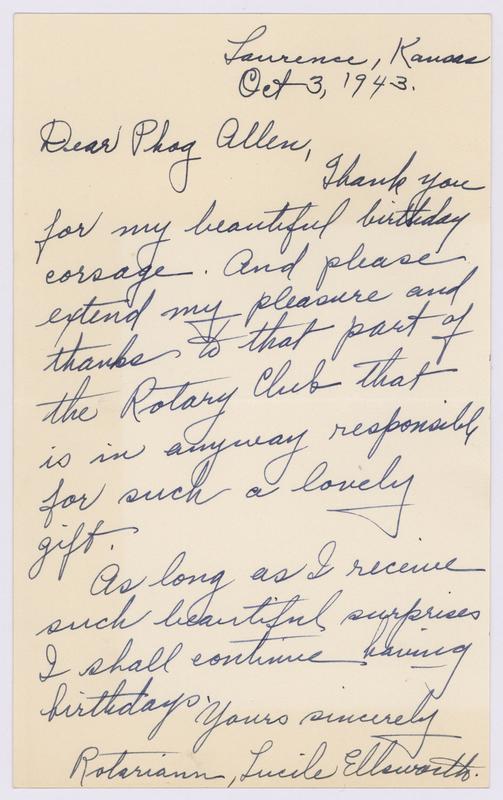 Lawrence, Kansas
Oct 3, 1943.
Dear Phog Allen,
Thank you
for my beautiful birthday
corsage. And please
extend my pleasure and
thanks to that part of
the Rotary Club that
is in anyway responsible
for such a lovely
gift.
As long as I receive
such beautiful surprises
I shall continue having
birthdays.
Yours sincerely
Rotariann, Lucile Ellsworth.